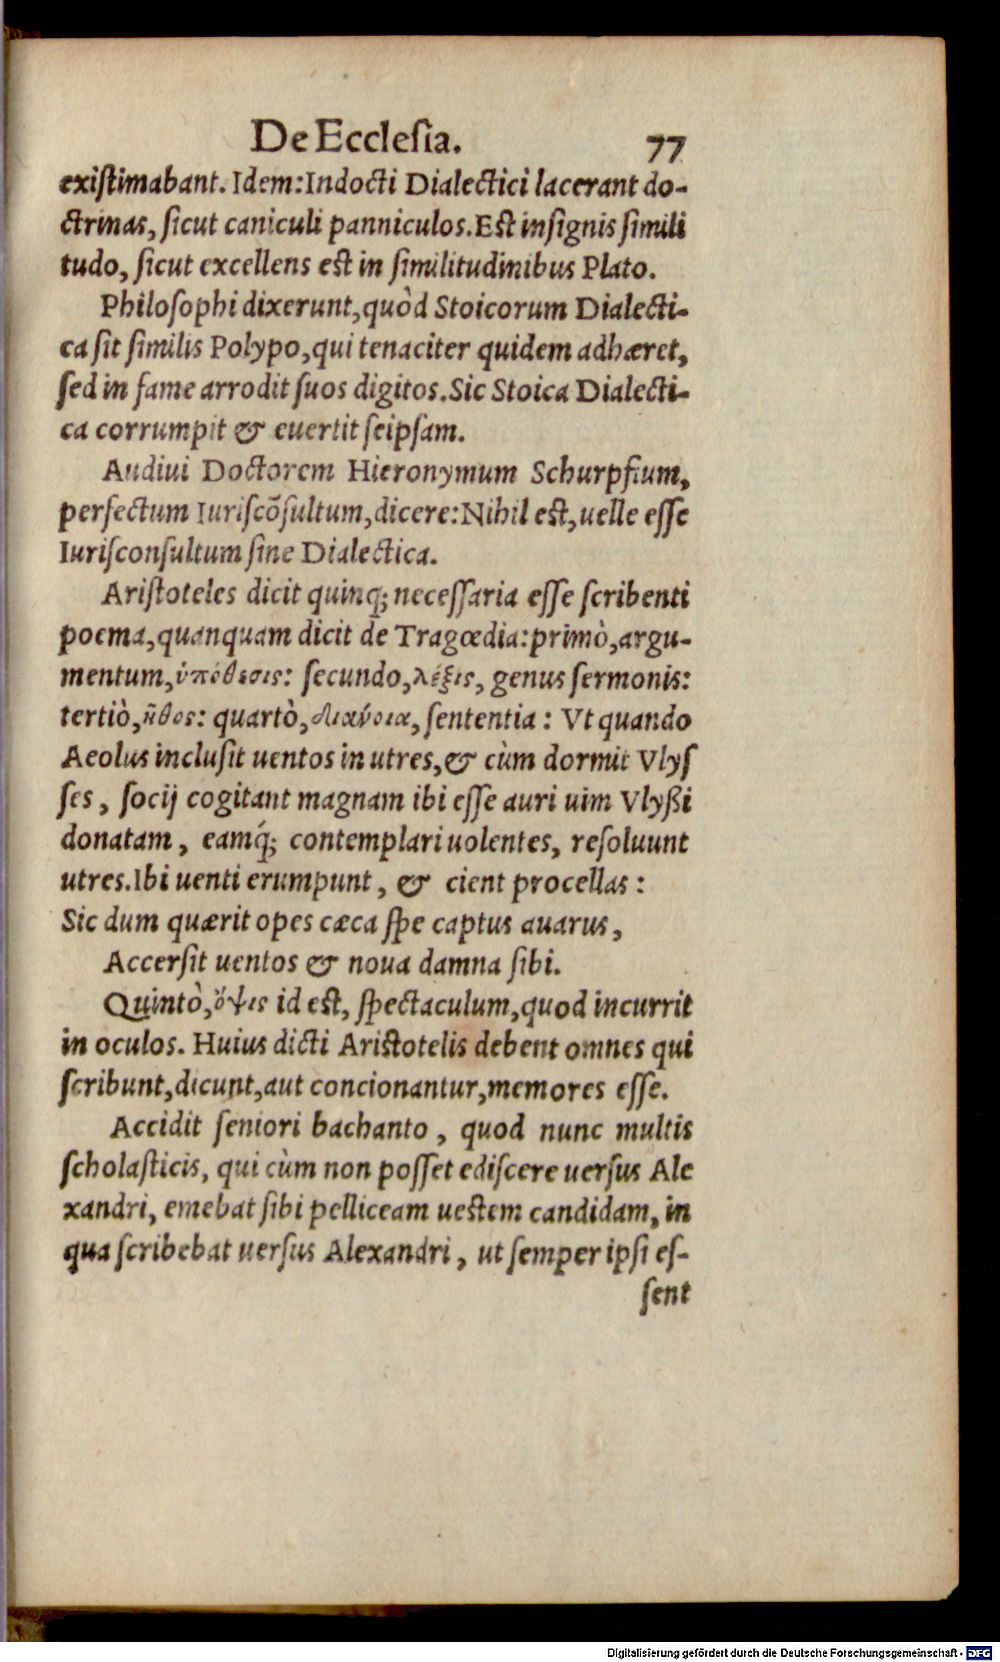 De Ecclesia. 77
existimabant. Idem: Indocti Dialectici lacerant do-
ctrinas, sicut caniculi panniculos. Est insignis simili
tudo, sicut excellens est in similitudinibus Plato.
Philosophi dixerunt, quòd Stoicorum Dialecti-
ca sit similis Polypo, qui tenaciter quidem adhæret,
sed in fame arrodit suos digitos. Sic Stoica Dialecti-
ca corrumpit & euertit seipsam.
Audiui Doctorem Hieronymum Schurpfium,
perfectum Iuriscõsultum, dicere: Nihil est, uelle esse
Iurisconsultum sine Dialectica.
Aristoteles dicit quinq; necessaria esse scribenti
poema, quanquam dicit de Tragœdia: primò, argu-
mentum, ὑπόθεσις: secundo, λέξις, genus sermonis:
tertiò, ἦθος: quartò, διάνοια, sententia: Vt quando
Aeolus inclusit uentos in utres, & cùm dormit Vlys
ses, socij cogitant magnam ibi esse auri uim Vlyßi
donatam, eamq́; contemplari uolentes, resoluunt
utres. Ibi uenti erumpunt, & cient procellas:
Sic dum quærit opes cæca spe captus auarus,
Accersit uentos & noua damna sibi.
Quintò, ὄψις id est, spectaculum, quod incurrit
in oculos. Huius dicti Aristotelis debent omnes qui
scribunt, dicunt, aut concionantur, memores esse.
Accidit seniori bachanto, quod nunc multis
scholasticis, qui cùm non posset ediscere uersus Ale
xandri, emebat sibi pelliceam uestem candidam, in
qua scribebat uersus Alexandri, ut semper ipsi es-
sent
Digitalisierung gefördert durch die Deutsche Forschungsgemeinschaft - DFG